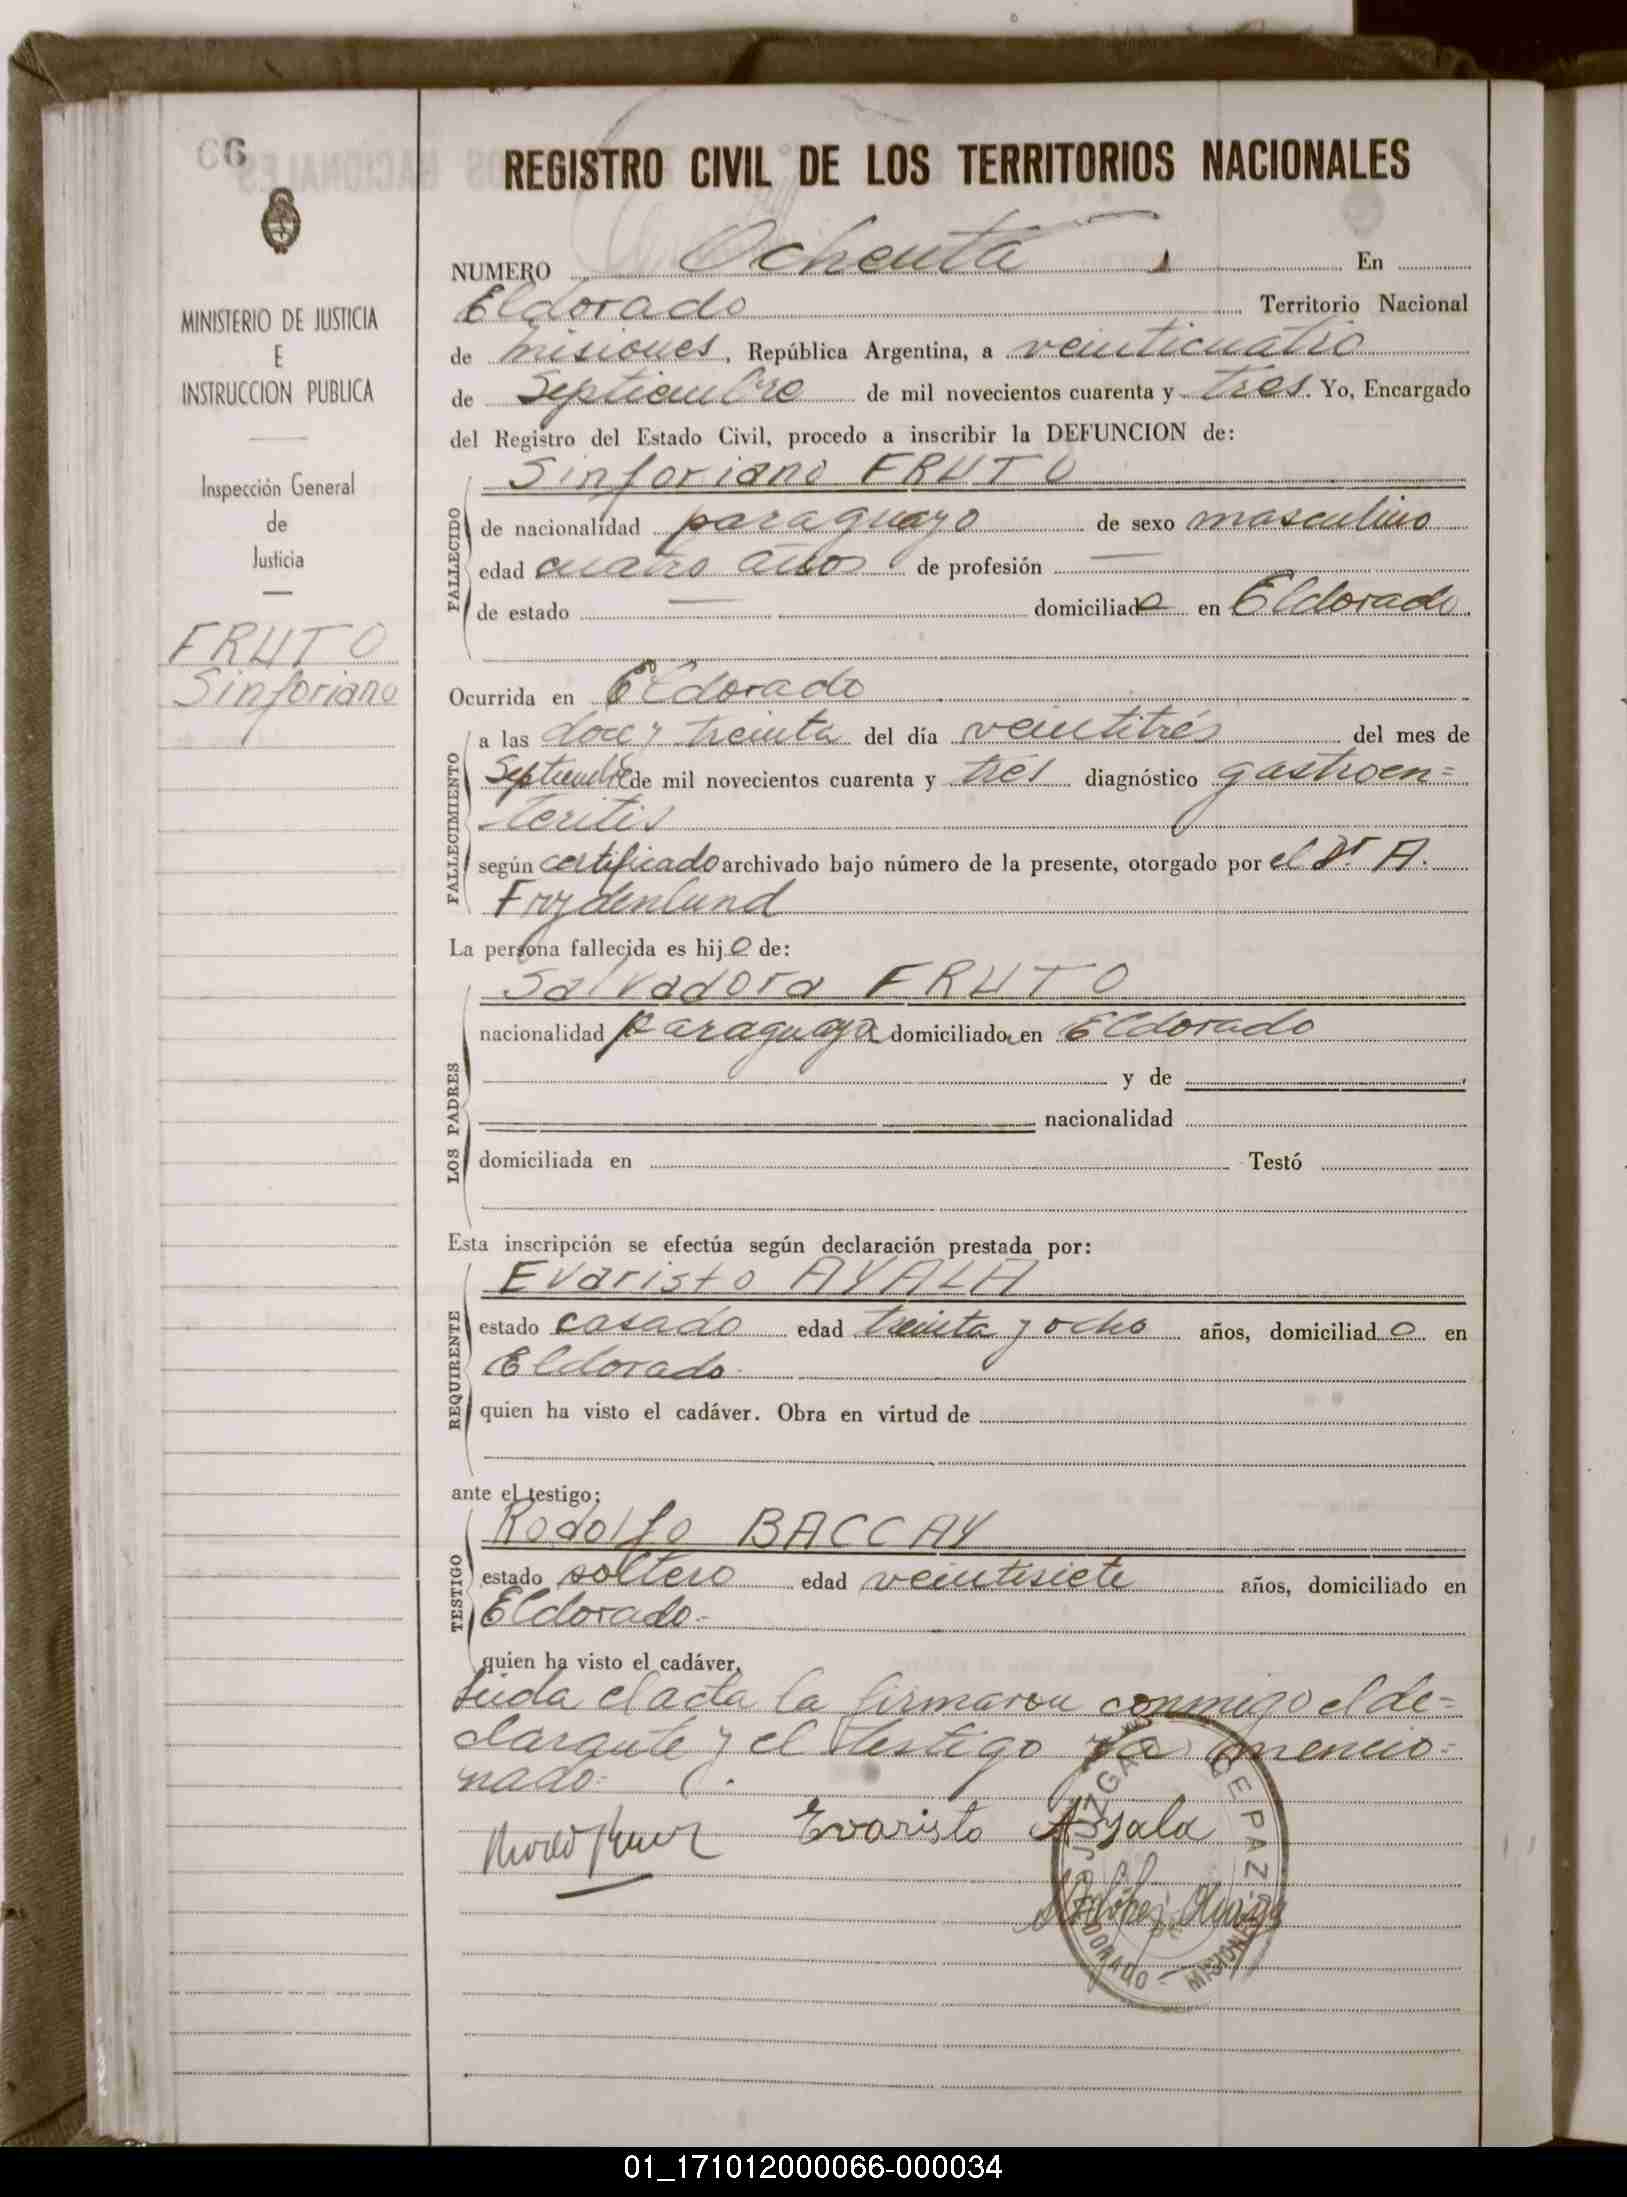 66
MINISTERIO DE JUSTICIA
E
INSTRUCCION PUBLICA
Inspección General
de
Justicia
FRUTO
Sinforiano
REGISTRO CIVIL DE LOS TERRITORIOS NACIONALES
NUMERO Ochenta En
Eldorado Territorio Nacional
de Misiones, República Argentina, a veinticuatro
de Septiembre de mil novecientos cuarenta y tres. Yo, Encargado
del Registro del Estado Civil, procedo a inscribir la DEFUNCION de:
Sinforiano FRUTO
FALLECIDO
de nacionalidad paraguayo de sexo masculino
edad cuatro años de profesión —
de estado — domiciliado en Eldorado
Ocurrida en Eldorado
FALLECIMIENTO
a las doce y treinta del día veintitrés del mes de
Septiembre de mil novecientos cuarenta y tres diagnóstico gastroen=
teritis
según certificado archivado bajo número de la presente, otorgado por el Dr A.
Froydenlund
La persona fallecida es hijo de:
LOS PADRES
Salvadora FRUTO
nacionalidad paraguaya domiciliada en Eldorado
y de
nacionalidad
domiciliada en Testó
Esta inscripción se efectúa según declaración prestada por:
REQUIRENTE
Evaristo AYALA
estado casado edad treinta y ocho años, domiciliado en
Eldorado
quien ha visto el cadáver. Obra en virtud de
ante el testigo:
TESTIGO
Rodolfo BACCAY
estado soltero edad veintisiete años, domiciliado en
Eldorado.-
quien ha visto el cadáver.
Leída el acta la firmaron conmigo el de=
clarante y el testigo ya mencio=
nado.-
Evaristo Ayala
JUZGADO DE PAZ
ELDORADO - MISIONES
01_171012000066-000034